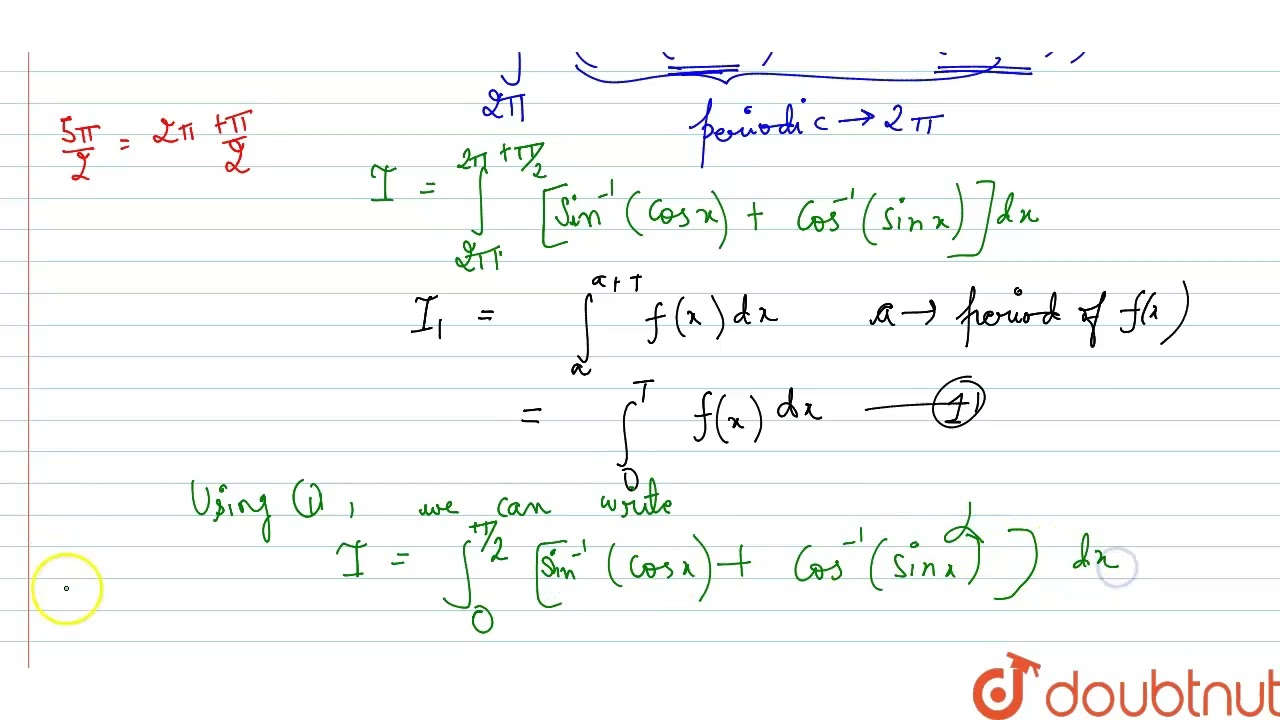 ∫ 2π
periodic → 2π
5π/2 = 2π + π/2
I = ∫_{2π}^{2π + π/2} [sin⁻¹(cos x) + cos⁻¹(sin x)] dx
I₁ = ∫_a^{a+T} f(x) dx a → period of f(x)
= ∫_0^T f(x) dx — ①
Using ①, we can write
I = ∫_0^{π/2} [sin⁻¹(cos x) + cos⁻¹(sin x)] dx
doubtnut